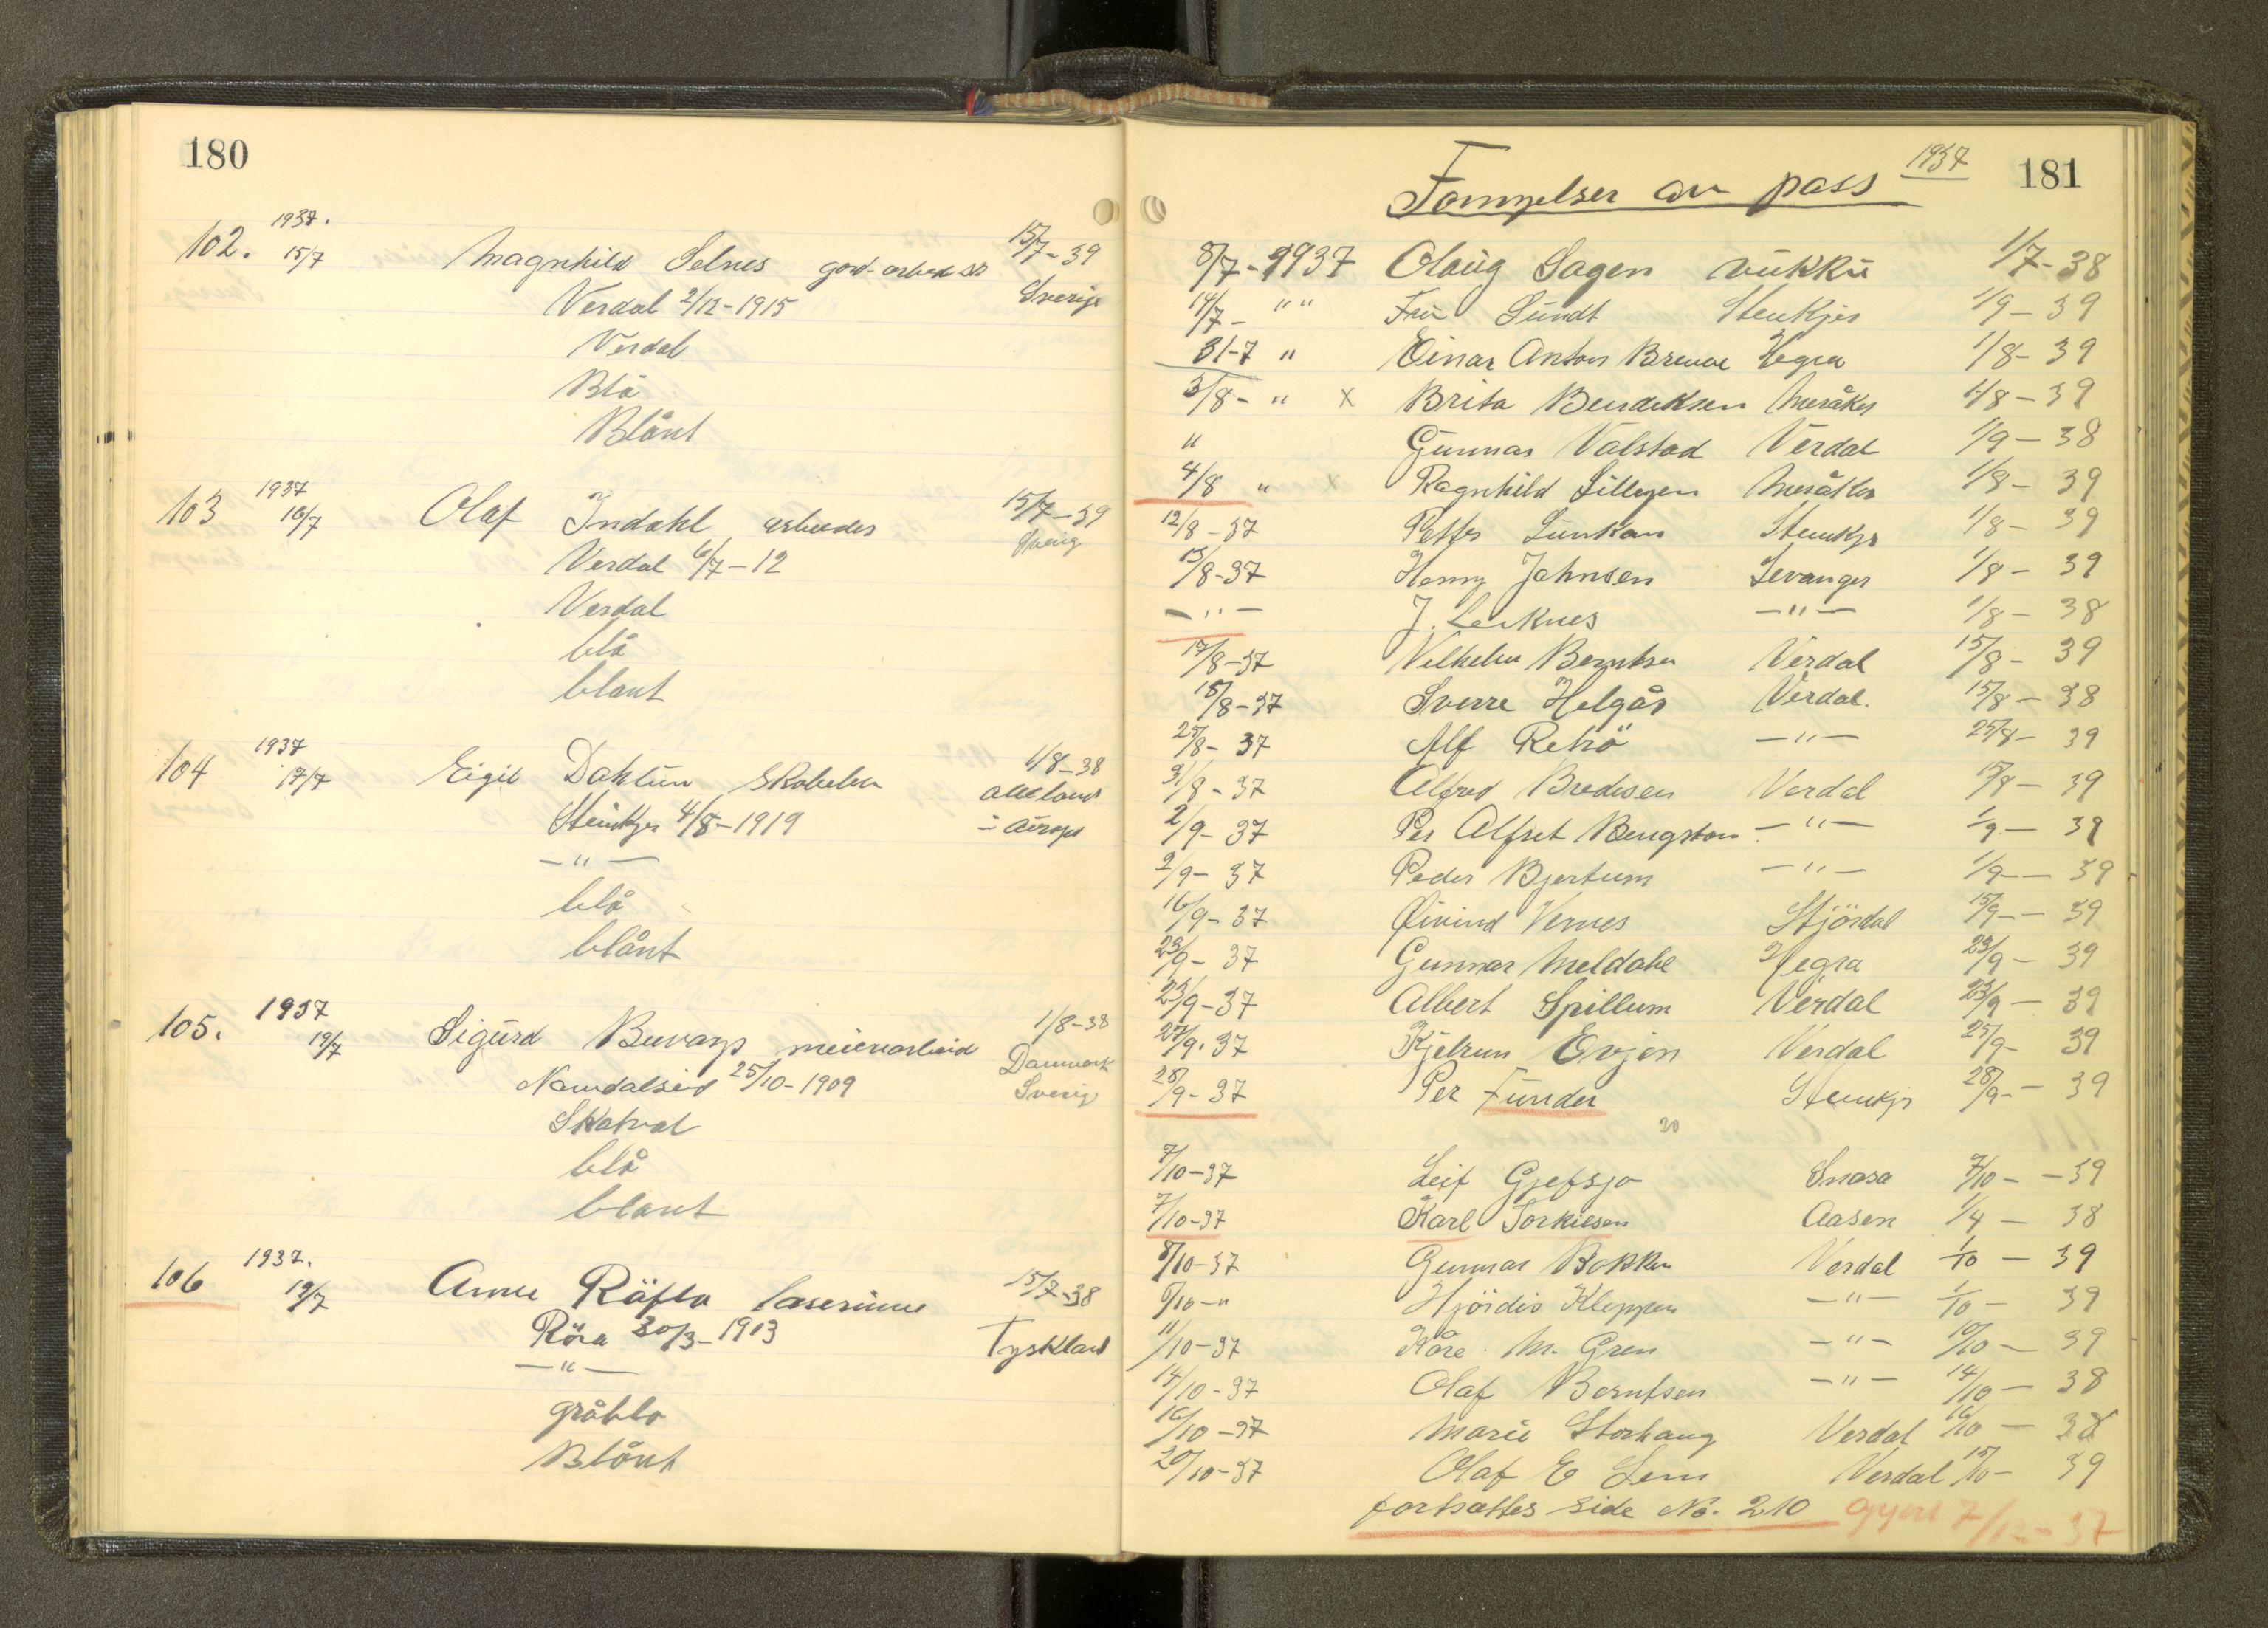 180
102. 1937. 15/7 Magnhild Selnes gård-arbeidsk 15/7-39
Verdal 2/12-1915 Sverige
Verdal
Blå
Blånt
103 1937 16/7 Olaf Indahl arbeider 15/7-39
Verdal 6/7-12 Sverig
Verdal
blå
blant
104 1937 17/7 Eigil Dahlun 1/8-38
Steinkjer 4/8-1919 alle land
-"- i
blå
blånt
105. 1937 19/7 Sigurd meieriarbeid 1/8-38
Namdalseid 25/10-1909 Danmark
Skatval Sverig
blå
blant
106 1937. 19/7 Anne 15/7-38
Röra 30/3-1913 Tyskland
-"-
gråblå
Blånt
181
Fornyelser av pass 1937
8/7-1937 Olaug Sagen Vukku 1/7-38
14/7- "" Fru Sundt Steinkjer 1/9-39
31-7 " Einar Anton Hegra 1/8-39
3/8- " x Brita Bendiksen Meråker 1/8-39
" Gunnar Valstad Verdal 1/9-38
4/8 " x Ragnhild Meråker 1/8-39
12/8-37 Petter Steinkjr 1/8-39
13/8-37 Johnsen Levanger 1/8-39
-"- J. Leiknes -"- 1/8-38
17/8-37 Vilhelm Berntsen Verdal 15/8-39
18/8-37 Sverre Helgås Verdal. 15/8-38
25/8-37 Alf -"- 25/8-39
31/8-37 Alfred Bredesen Verdal 15/8-39
2/9-37 Per Alfret Bengtson -"- 1/9-39
2/9-37 Peder Bjertum -"- 1/9-39
16/9-37 Øivind Vernes Stjördal 15/9-39
23/9-37 Gunnar Meldahl Hegra 23/9-39
23/9-37 Albert Spillum Verdal 23/9-39
27/9-37 Kjelrun Evjen Verdal 25/9-39
28/9-37 Per Funder Steinkjr 28/9-39
20
7/10-37 Leif Gjefsjo Snasa 7/10-39
7/10-37 Karl Torkilsen Aasen 1/4-38
8/10-37 Gunnar Bokken Verdal 1/10-39
8/10-" Hjördis Kleppen -"- 1/10-39
11/10-37 Kåre M. Gren -"- 10/10-39
14/10-37 Olaf Berntsen -"- 14/10-38
16/10-37 Marie Storhaug Verdal 16/10-38
20/10-37 Olaf E Lein Verdal 15/10-39
fortsattes side No. 210 gjort 7/12-37